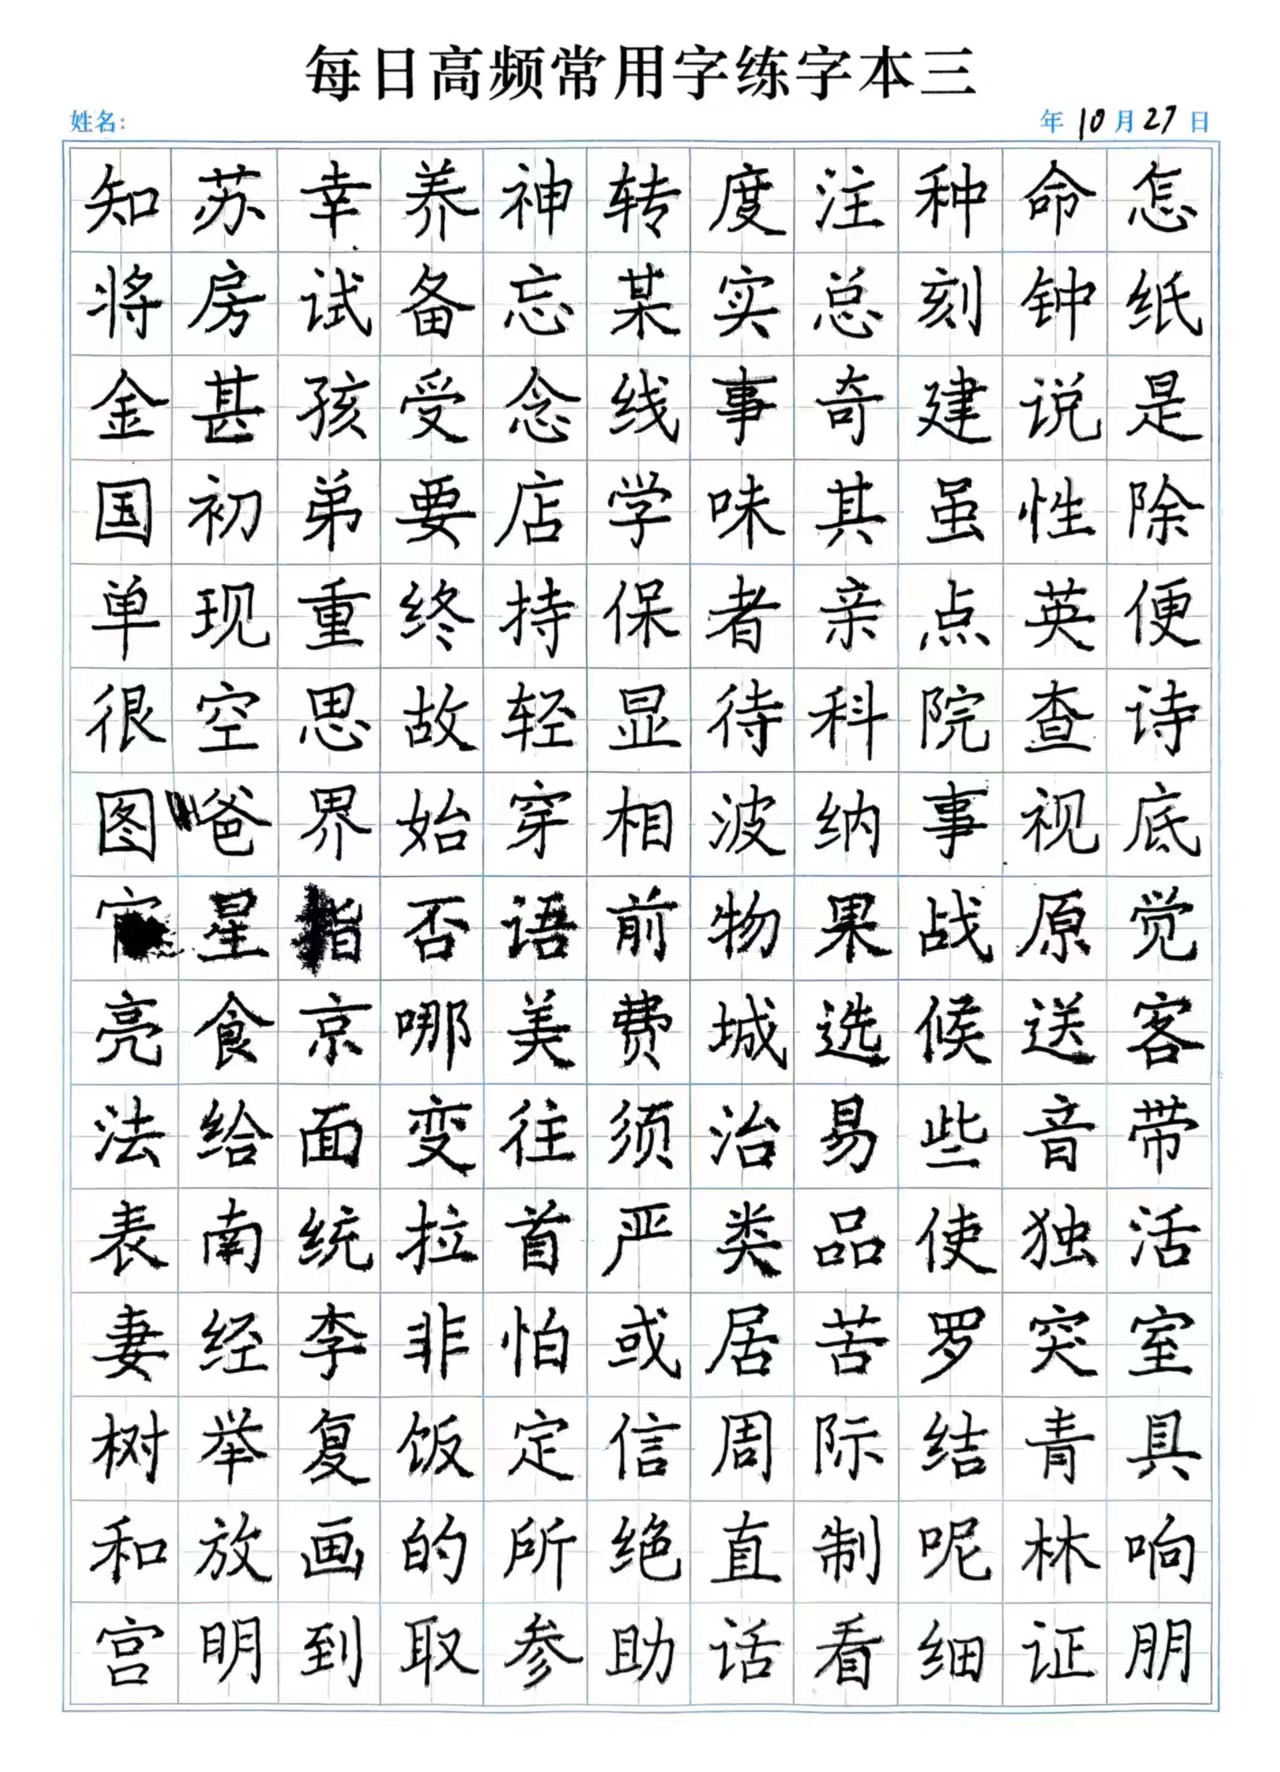 每日高频常用字练字本三
姓名: 年10月27日
知苏幸养神转度注种命怎
将房试备忘某实总刻钟纸
金甚孩受念线事奇建说是
国初弟要店学味其虽性除
单现重终持保者亲点英便
很空思故轻显待科院查诗
图爸界始穿相波纳事视底
星指否语前物果战原觉
亮食京哪美费城选候送客
法给面变往须治易些音带
表南统拉首严类品使独活
妻经李非怕或居苦罗突室
树举复饭定信周际结青具
和放画的所绝直制呢林响
宫明到取参助话看细证朋